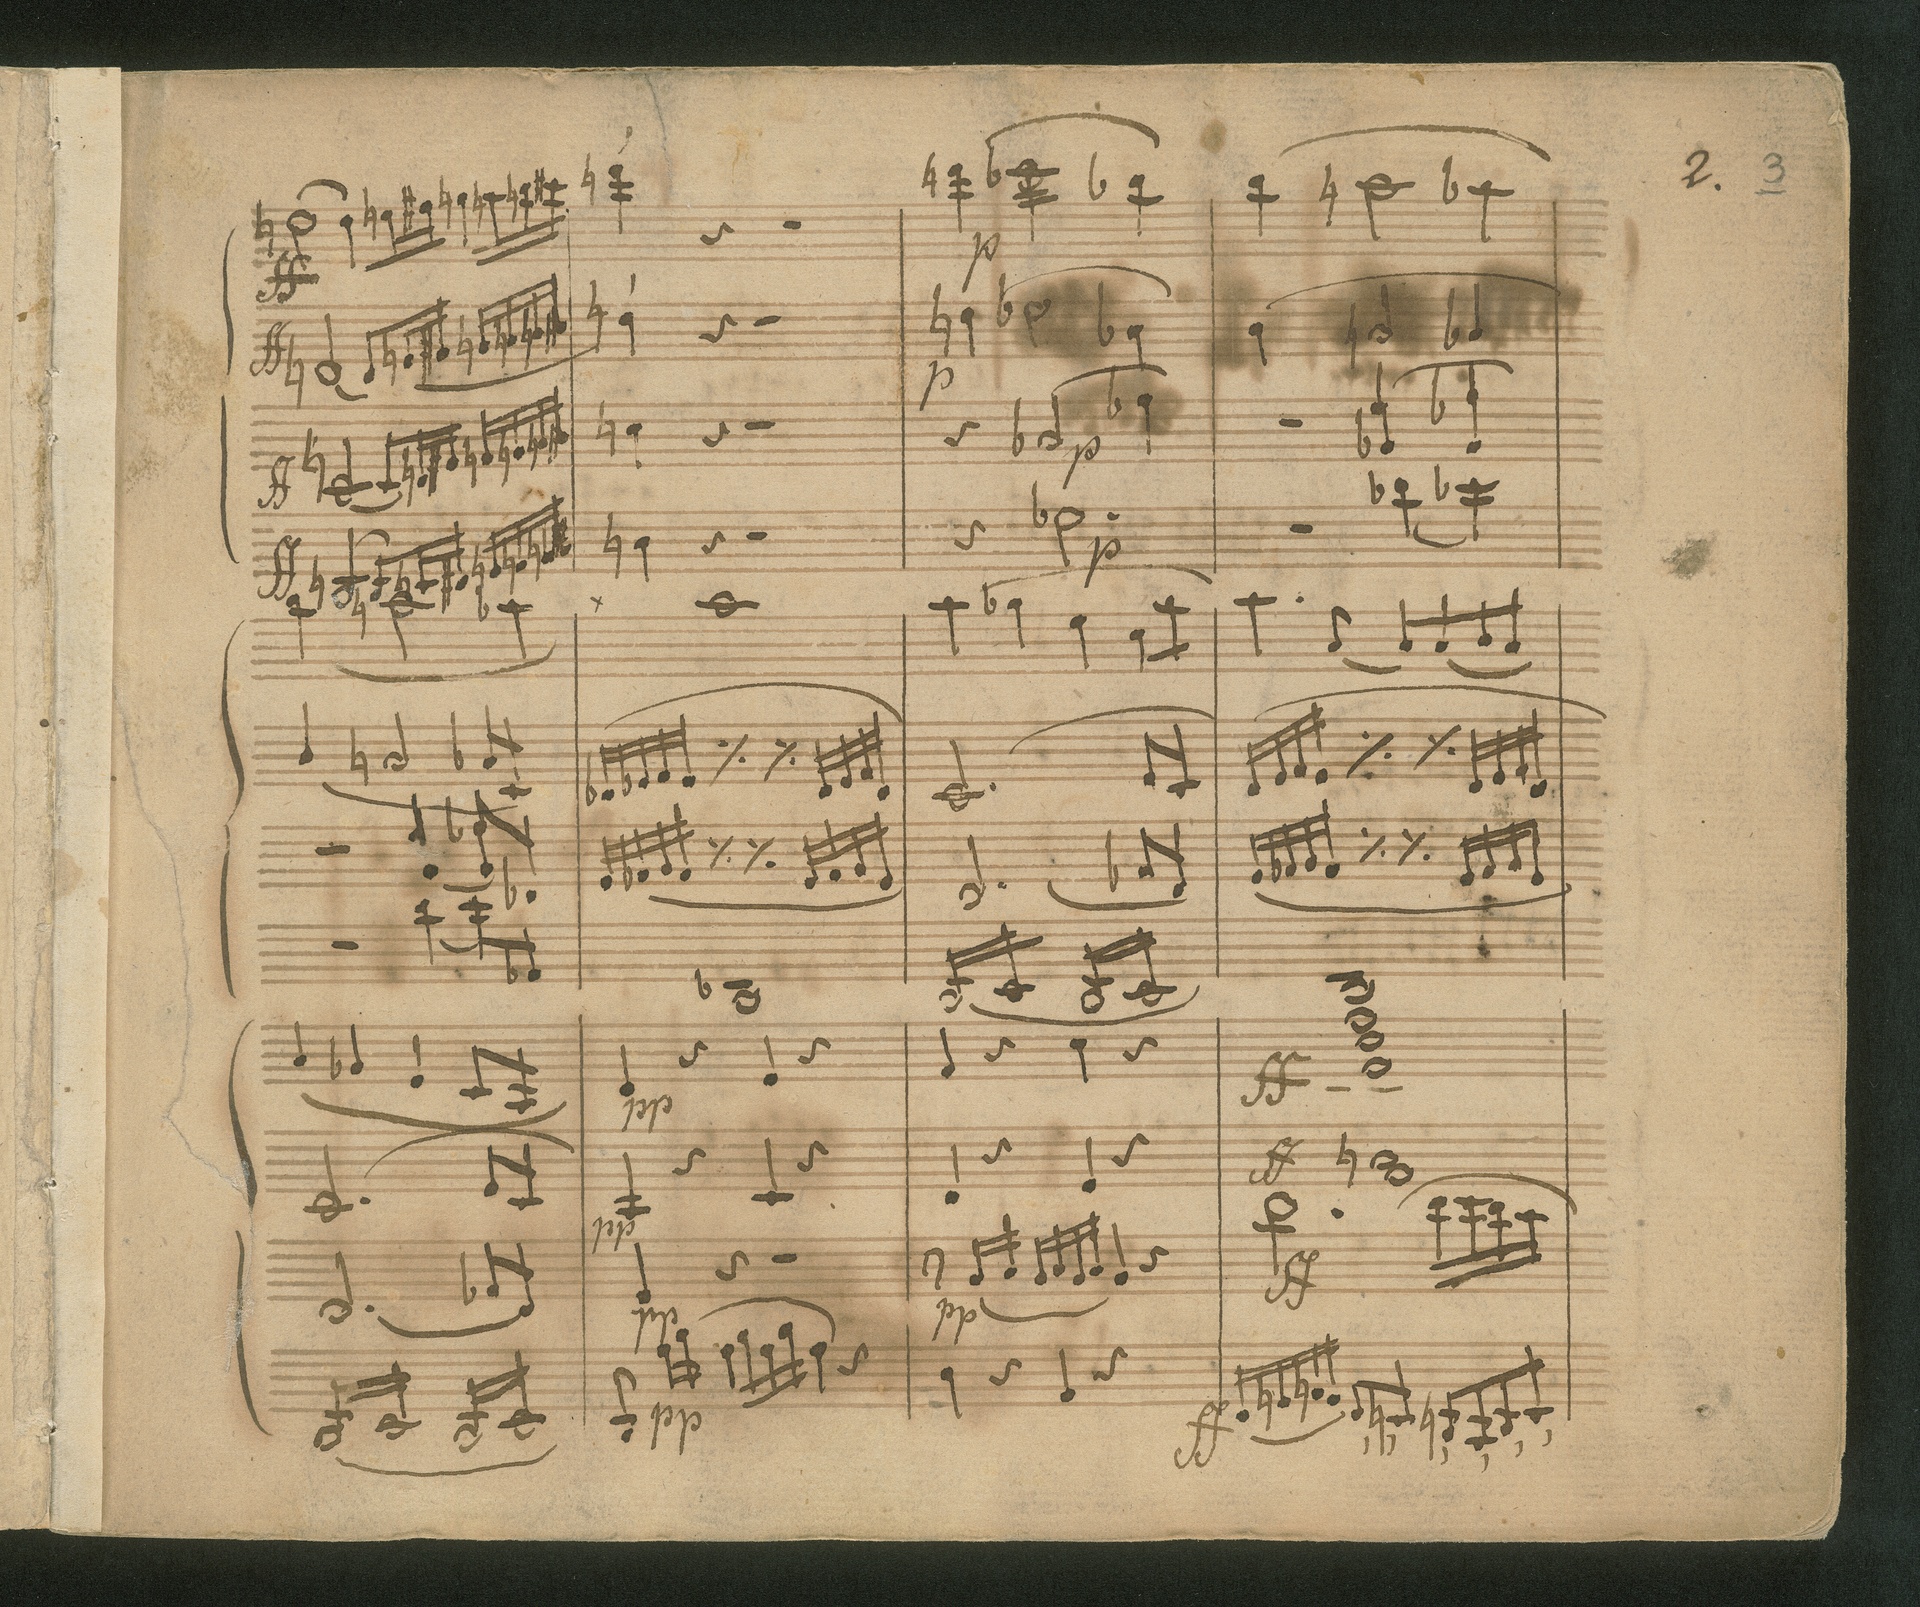 2. 3
ff
p
ff
p
ff
p
ff
p
pp
ff
pp
ff
pp
pp
ff
pp
ff